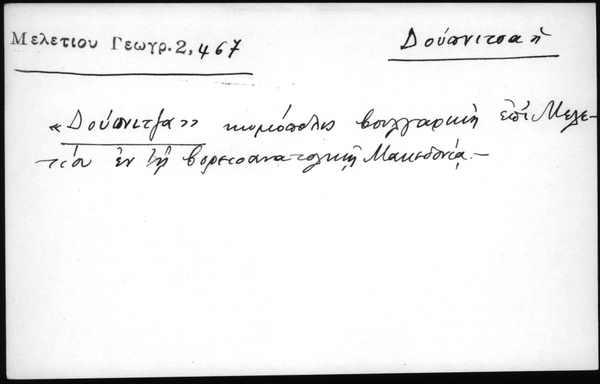 Μελετίου Γεωγρ. 2, 467
Δούπνιτσα ἡ
«Δούπνιτζα» κωμόπολις βουλγαρική ἐπί Μελε-
τίου ἐν τῇ βορειοανατολικῇ Μακεδονίᾳ.—